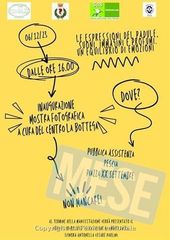 06/12/23
LE ESPRESSIONI DEL PADULE.
SUONI, IMMAGINI E PROFUMI.
UN EQUILIBRIO DI EMOZIONI
DALLE ORE 16.00
INAUGURAZIONE
MOSTRA FOTOGRAFICA
A CURA DEL CENTRO LA BOTTEGA
DOVE?
PUBBLICA ASSISTENZA
PESCIA
PIAZZA XX SETTEMBRE
MESE
NON MANCARE!
AL TERMINE DELLA MANIFESTAZIONE VERRÀ PRESENTATO IL